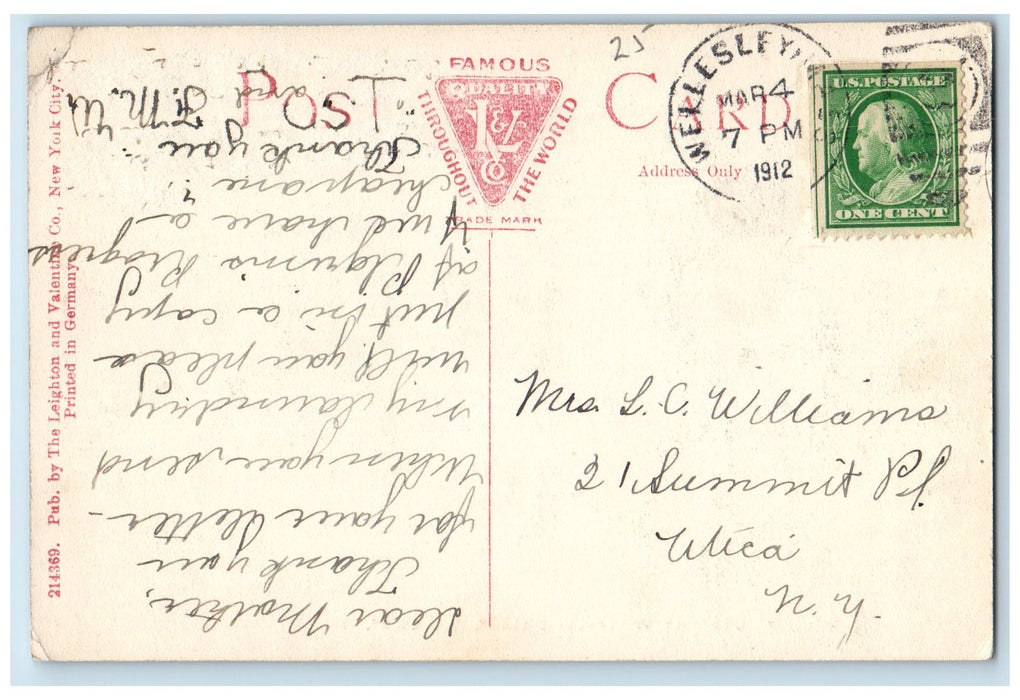 25
POST CARD
FAMOUS
QUALITY
THROUGHOUT
THE WORLD
L&V
CO
TRADE MARK
Address Only
WELLESLEY
MAR 4
7 PM
1912
U.S. POSTAGE
ONE CENT
214369. Pub. by The Leighton and Valentine Co., New York City.
Printed in Germany.
Dear Mother,
Thank you
for your letter –
When you send
my laundry
will you please
put in a copy
of Pilgrims Progress
if we have a
cheap one?
Thank you
and
F. M. W.
Mrs. L. C. Williams
21 Summit Pl.
Utica
N. Y.